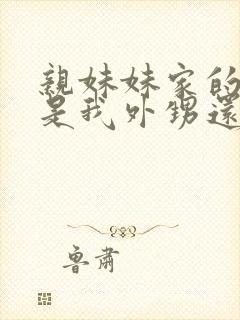 親妹妹家的
是我外甥還
魯肅